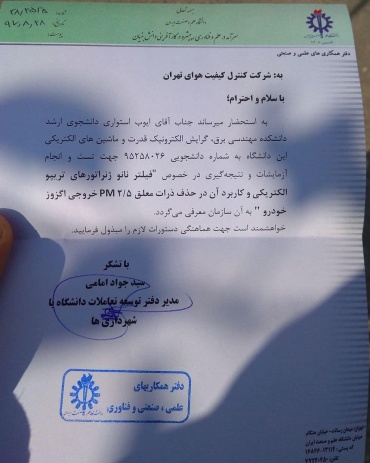 بسمه تعالی
دانشگاه علم و صنعت ایران
سرآمد در علم و فناوری پیشرو در کارآفرینی دانش بنیان
۹۷,۸,۲۸
دفتر همکاری های علمی و صنعتی
به: شرکت کنترل کیفیت هوای تهران
با سلام و احترام؛
به استحضار میرساند جناب آقای ایوب استواری دانشجوی ارشد
دانشکده مهندسی برق، گرایش الکترونیک قدرت و ماشین های الکتریکی
این دانشگاه به شماره دانشجویی ۹۵۲۵۸۰۲۶ جهت تست و انجام
آزمایشات و نتیجه‌گیری در خصوص "فیلتر نانو ژنراتورهای تریبو
الکتریکی و کاربرد آن در حذف ذرات معلق PM ۲/۵ خروجی اگزوز
خودرو " به آن سازمان معرفی می‌گردد.
خواهشمند است جهت هماهنگی دستورات لازم را مبذول فرمایید.
با تشکر
سید جواد امامی
مدیر دفتر توسعه تعاملات دانشگاه با
شهرداری ها
دفتر همکاریهای
علمی ، صنعتی و فناوری
تهران، خیابان رسالت، خیابان هنگام
خیابان دانشگاه علم و صنعت ایران
کد پستی: ۱۳۱۱۴-۱۶۸۴۶